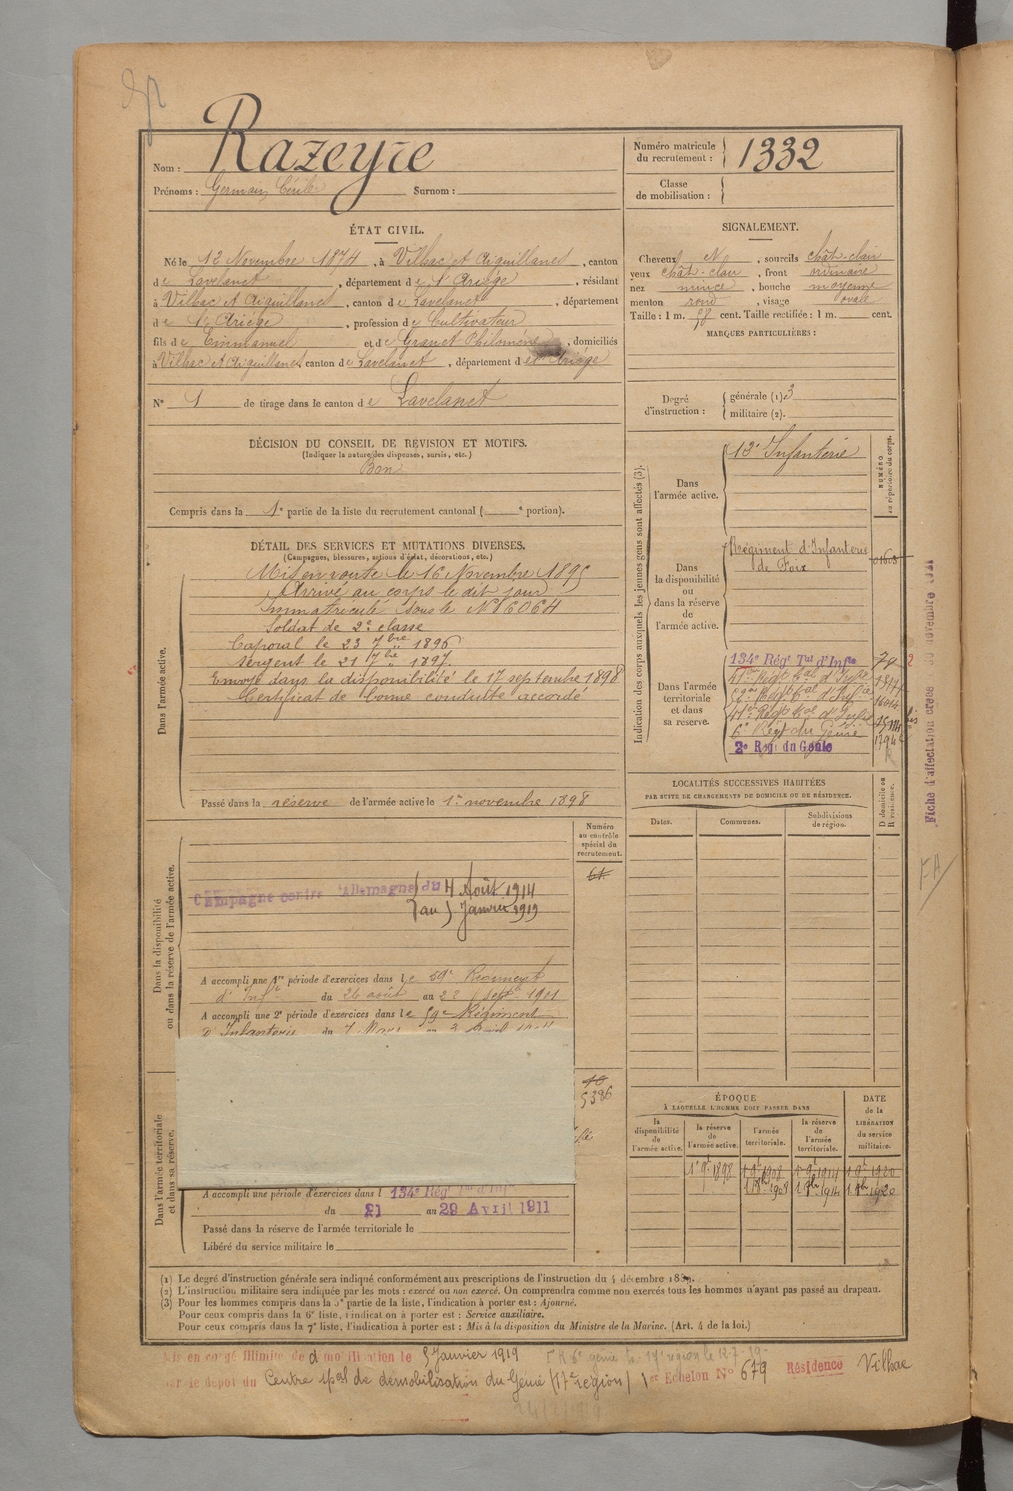 Nom : Razeyre
Prénoms : Germain Cécile Surnom :
Numéro matricule du recrutement : 1332
Classe de mobilisation :
ÉTAT CIVIL.
Né le 12 Novembre 1874, à Vilhac et Aiguillanes, canton
de Lavelanet, département de l'Ariège, résidant
à Vilhac et Aiguillanes, canton de Lavelanet, département
de l'Ariège, profession de Cultivateur
fils de Emmanuel et de Granet Philomène, domiciliés
à Vilhac et Aiguillanes canton de Lavelanet, département de Ariège
N° 1 de tirage dans le canton de Lavelanet
SIGNALEMENT.
Cheveux N, sourcils chât-clair
yeux chât-clair, front ordinaire
nez mince, bouche moyenne
menton rond, visage ovale
Taille : 1 m. 58 cent. Taille rectifiée : 1 m. cent.
MARQUES PARTICULIÈRES :
Degré d'instruction : générale (1) 3
militaire (2).
DÉCISION DU CONSEIL DE RÉVISION ET MOTIFS.
(Indiquer la nature des dispenses, sursis, etc.)
Bon
Compris dans la 1e partie de la liste du recrutement cantonal ( e portion).
DÉTAIL DES SERVICES ET MUTATIONS DIVERSES.
(Campagnes, blessures, actions d'éclat, décorations, etc.)
Dans l'armée active.
Mis en route le 16 Novembre 1895
Arrivé au corps le dit jour
Immatriculé sous le N° 6064
Soldat de 2e classe
Caporal le 23 7bre 1896
Sergent le 21 7bre 1897.
Envoyé dans la disponibilité le 17 septembre 1898
Certificat de bonne conduite accordé
Passé dans la réserve de l'armée active le 1er novembre 1898
Indication des corps auxquels les jeunes gens sont affectés (3).
NUMÉRO au répertoire du corps.
Dans l'armée active. 13e Infanterie
Dans la disponibilité ou dans la réserve de l'armée active.
Régiment d'Infanterie de Foix
Dans l'armée territoriale et dans sa réserve.
134e Régt Tal d'Infie 74
6e Régt du Génie
2e Rég. du Génie
Fiche d'affectation créée 30 novembre 1921
FA
LOCALITÉS SUCCESSIVES HABITÉES
PAR SUITE DE CHANGEMENTS DE DOMICILE OU DE RÉSIDENCE.
D domicile ou R résidence.
Dates. Communes. Subdivisions de région.
Dans la disponibilité ou dans la réserve de l'armée active.
Numéro au contrôle spécial du recrutement.
61
Campagne contre l'Allemagne du 4 Août 1914
au 5 Janvier 1919
A accompli une 1re période d'exercices dans le 59e Régiment
d'Infie du 26 août au 22 septe 1901
A accompli une 2e période d'exercices dans le 59e Régiment
d'Infanterie du 7 Mars au
10
5386
Dans l'armée territoriale et dans sa réserve.
A accompli une période d'exercices dans l 134e Régt Tal d'Infie
du 21 au 29 Avril 1911
Passé dans la réserve de l'armée territoriale le
Libéré du service militaire le
ÉPOQUE
À LAQUELLE L'HOMME DOIT PASSER DANS
la disponibilité de l'armée active.
la réserve de l'armée active.
l'armée territoriale.
la réserve de l'armée territoriale.
DATE de la LIBÉRATION du service militaire.
1er 9e 1898 1 9e 1908 1er 9e 1914 1 9e 1920
1 8bre 1908 1 8bre 1914 1 8bre 1920
(1) Le degré d'instruction générale sera indiqué conformément aux prescriptions de l'instruction du 4 décembre 1889.
(2) L'instruction militaire sera indiquée par les mots : exercé ou non exercé. On comprendra comme non exercés tous les hommes n'ayant pas passé au drapeau.
(3) Pour les hommes compris dans la 5e partie de la liste, l'indication à porter est : Ajourné.
Pour ceux compris dans la 6e liste, l'indication à porter est : Service auxiliaire.
Pour ceux compris dans la 7e liste, l'indication à porter est : Mis à la disposition du Ministre de la Marine. (Art. 4 de la loi.)
Mis en congé illimité de démobilisation le 5 Janvier 1919
par le dépôt du Centre spal de démobilisation du Génie (17e région) 1er Echelon N° 679 Résidence Vilhac